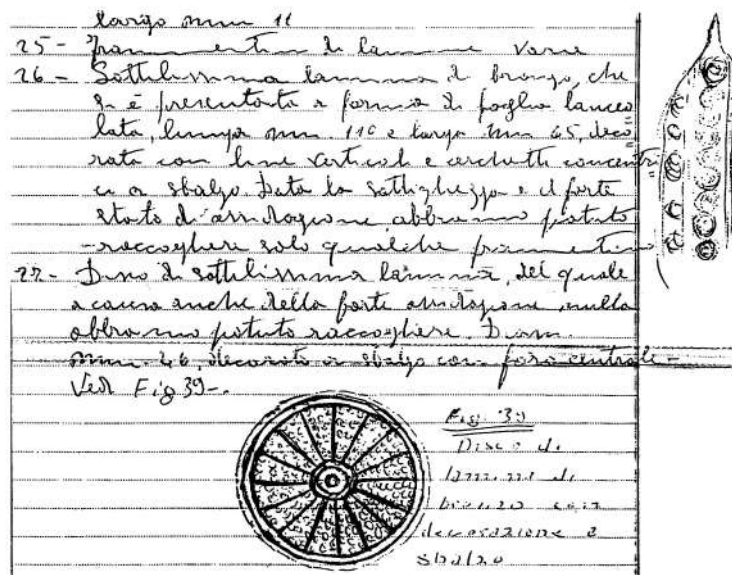 largo mm 11
25 - Frammentini di lamine varie
26 - Sottilissima lamina di bronzo, che
si è presentata a forma di foglia lanceo
lata, lunga mm. 110 e larga mm 65, deco
rata con linee verticali e cerchietti concentri
ci a sbalzo. Data la sottigliezza e il forte
stato di ossidazione abbiamo potuto
raccogliere solo qualche frammentino
27 - Disco di sottilissima lamina, del quale
a causa anche della forte ossidazione, nulla
abbiamo potuto raccogliere. Diam.
mm. 46, decorato a sbalzo con foro centrale -
Vedi Fig 39 -.
Fig. 39
Disco di
lamina di
bronzo con
decorazione a
sbalzo